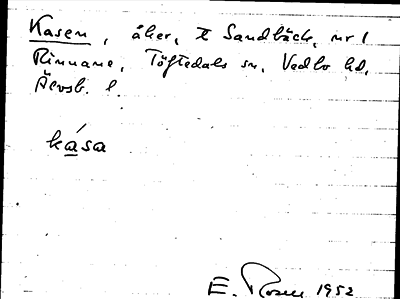 Kasen, åker, t Sandbäck, nr 1
Rinnane, Töftedals sn, Vedbo hd,
Älvsb. l.
kása
E. Rosell 1952